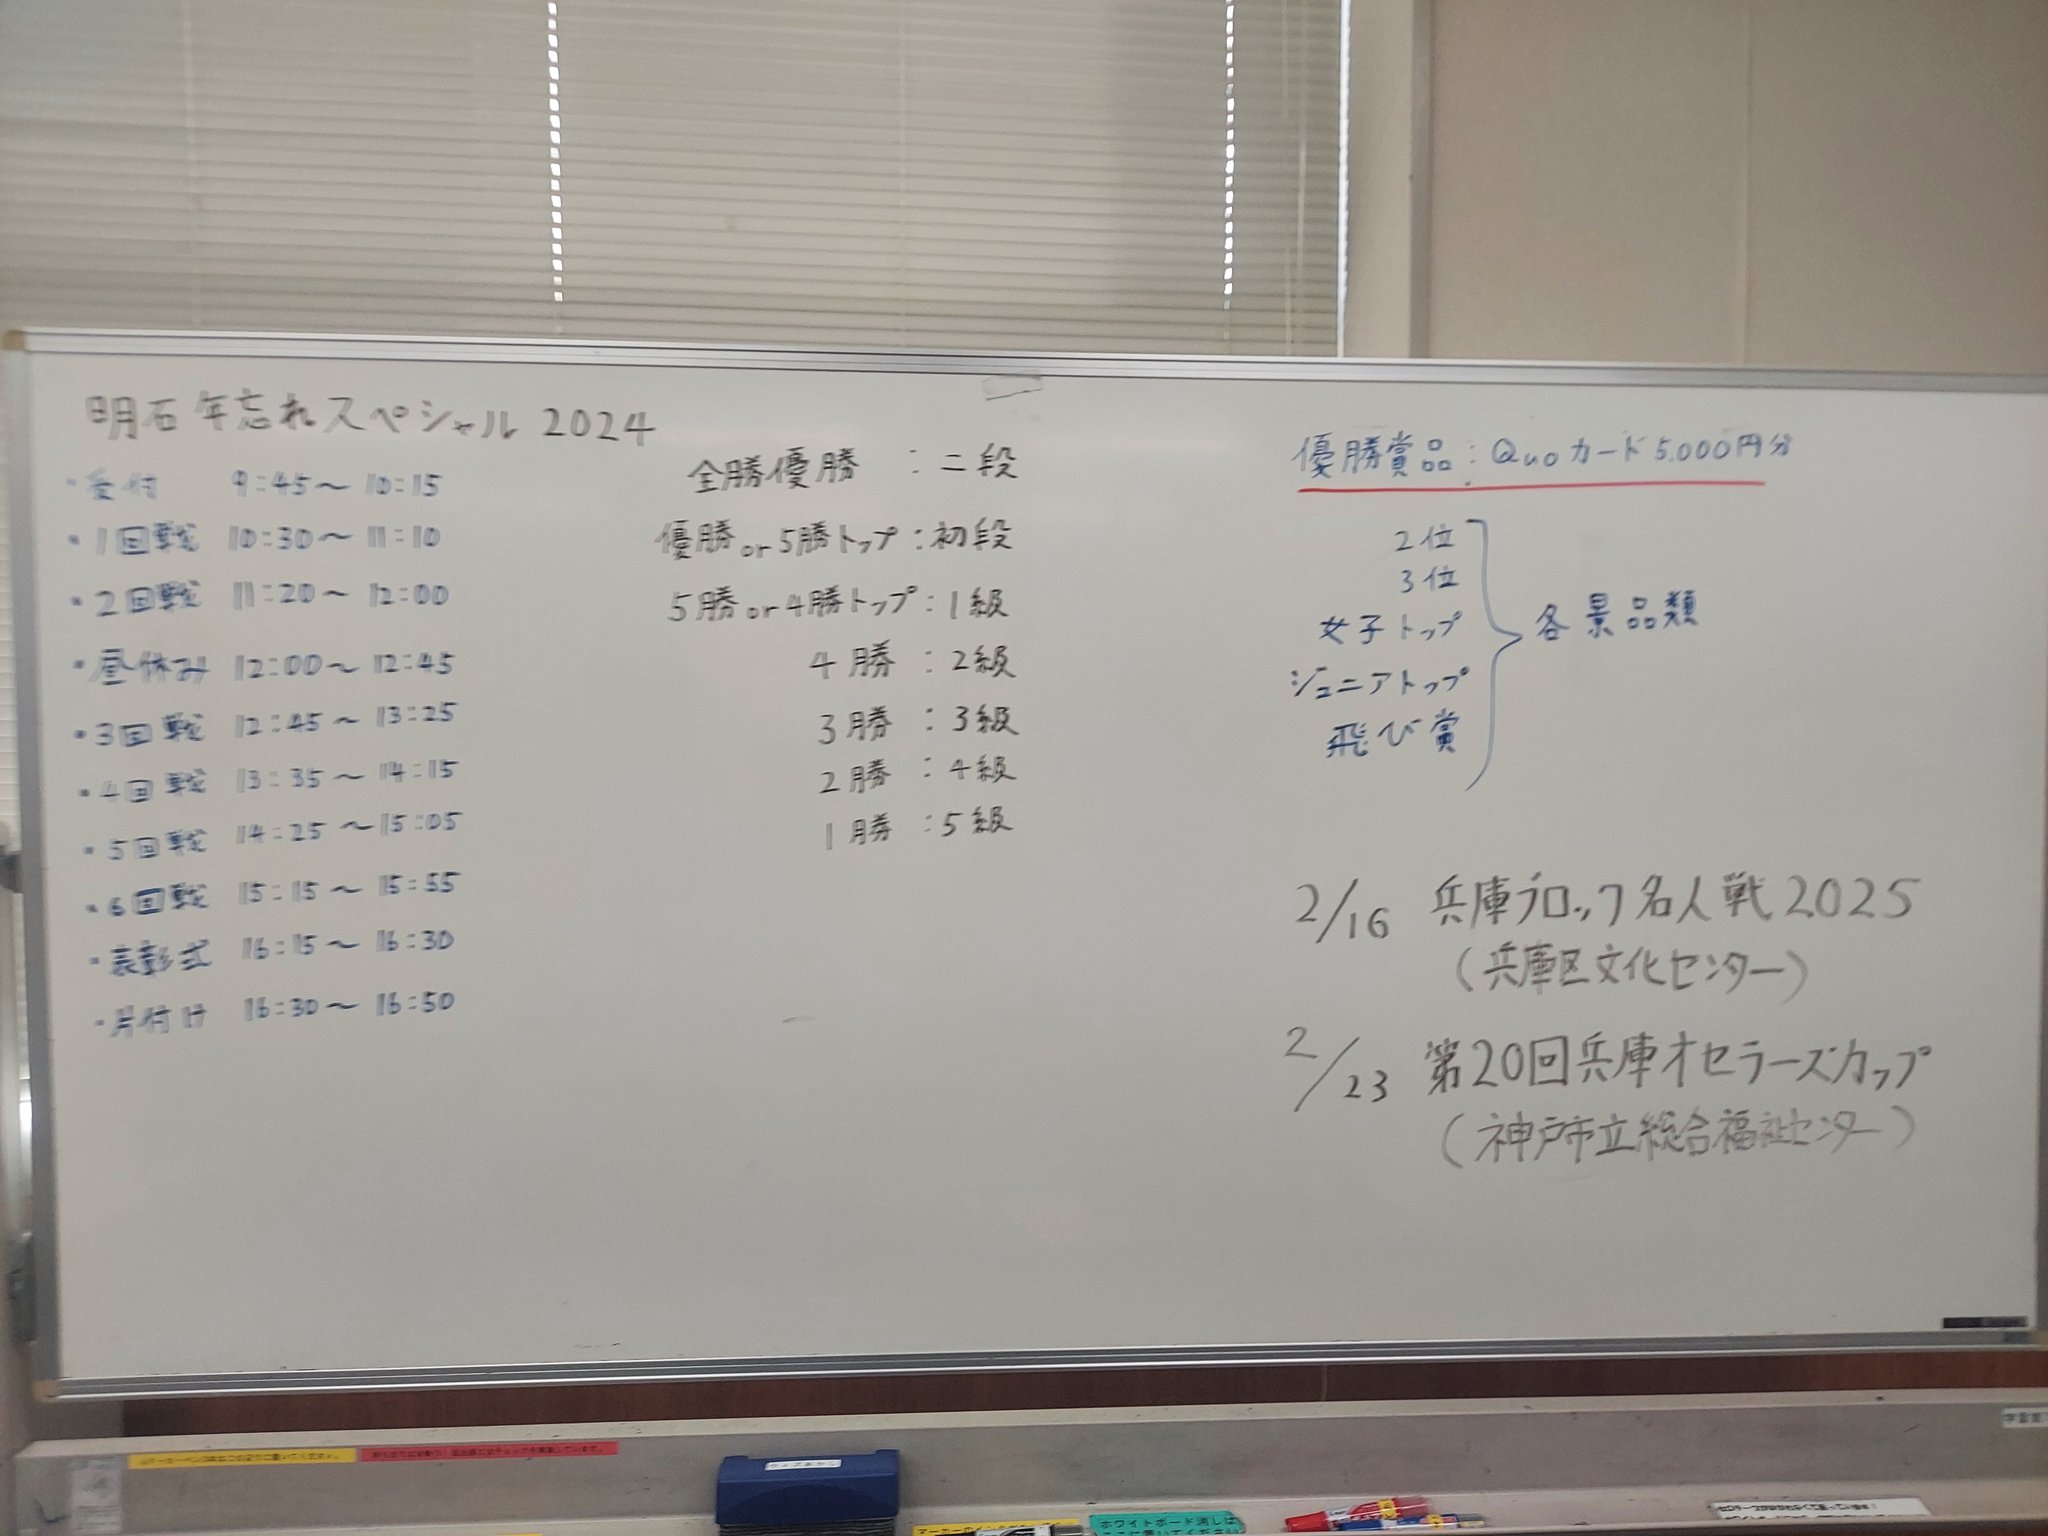 明石年忘れスペシャル2024
・受付 9:45～10:15
・1回戦 10:30～11:10
・2回戦 11:20～12:00
・昼休み 12:00～12:45
・3回戦 12:45～13:25
・4回戦 13:35～14:15
・5回戦 14:25～15:05
・6回戦 15:15～15:55
・表彰式 16:15～16:30
・片付け 16:30～16:50
全勝優勝：二段
優勝or5勝トップ：初段
5勝or4勝トップ：1級
4勝：2級
3勝：3級
2勝：4級
1勝：5級
優勝賞品：Quoカード5.000円分
2位
3位
女子トップ
ジュニアトップ
飛び賞
各景品類
2/16 兵庫ブロック名人戦2025
（兵庫区文化センター）
2/23 第20回兵庫オセラーズカップ
（神戸市立総合福祉センター）
ホワイトボード消しは
ここに置いてください